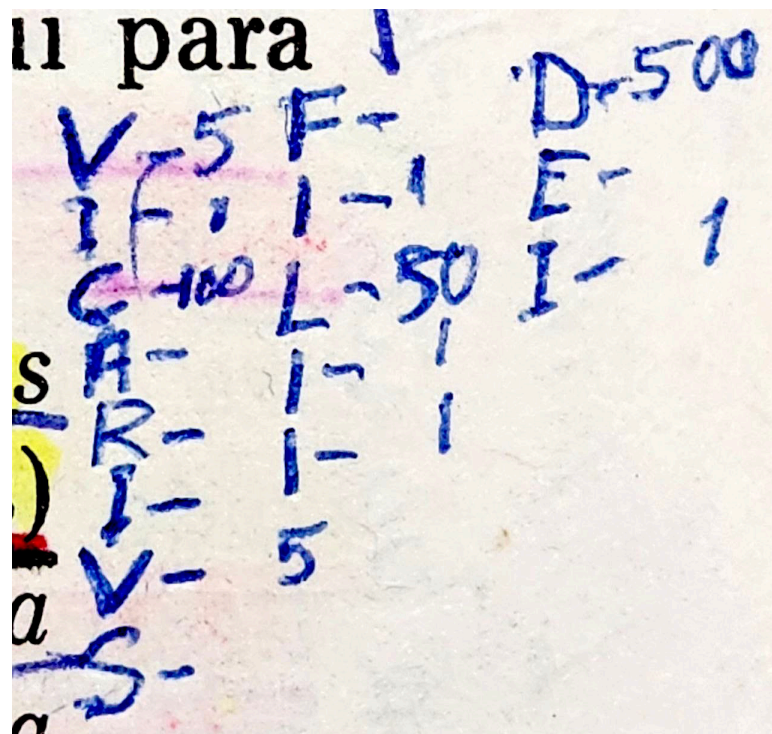 para
V - 5
I - 1
C - 100
A -
R -
I -
V - 5
S -
F -
I - 1
L - 50
I - 1
I - 1
D - 500
E -
I - 1
s
)
a